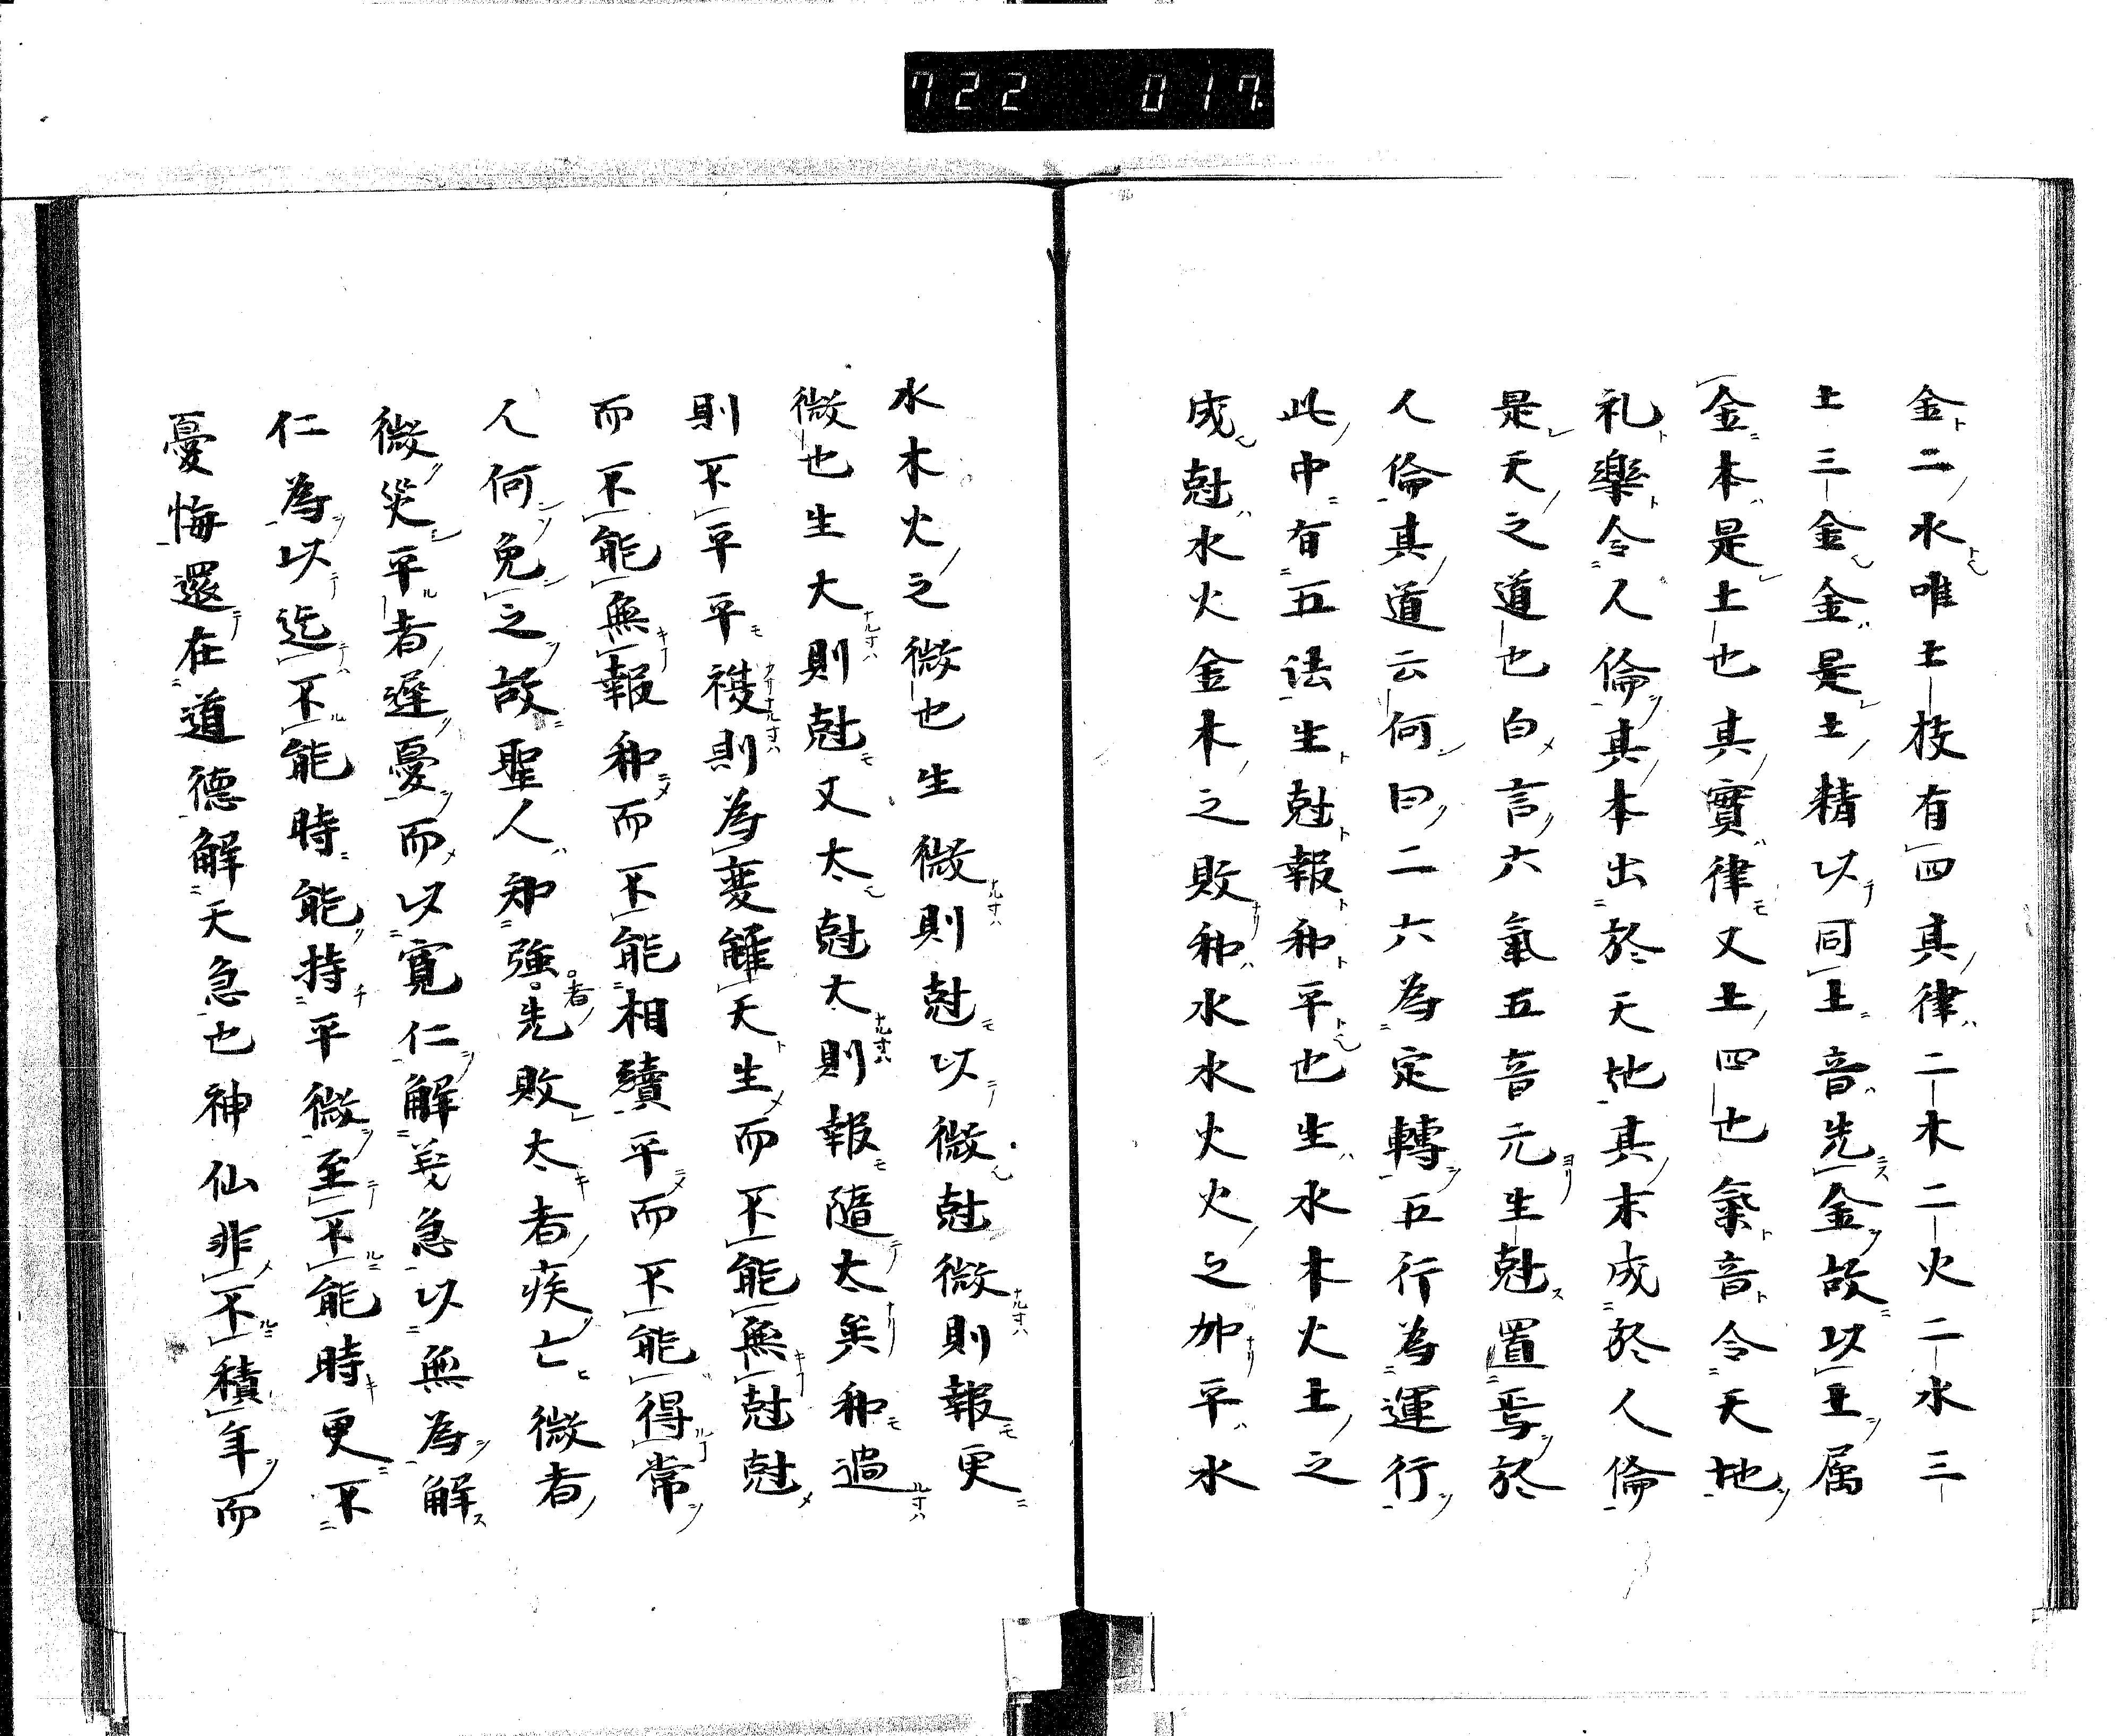 722 017.
金二水唯土枝有四其律二木二火二水三
土三金金是土精以同土音先金故以土属
金本是土也其實律又土四也氣音令天地
礼樂令人倫其本出於天地其末成於人倫
是天之道也白言六氣五音元生尅置焉於
人倫其道云何曰二六為定轉五行為運行
此中有五法生尅報和平也生水木火土之
成尅水火金木之敗和水水火火之加平水
水木火之微也生微則尅以微尅微則報更
微也生大則尅又太尅大則報隨太矣和過
則不平平複則為変雖天生而不能無尅尅
而不能無報和而不能相續平而不能得常
人何免之故聖人知強者先敗太者疾亡微者
微災平者遲憂而以寛仁解義急以無為解
仁為以迄不能時能持平微至不能時更不
憂悔還在道徳解天急也神仙非不積年而